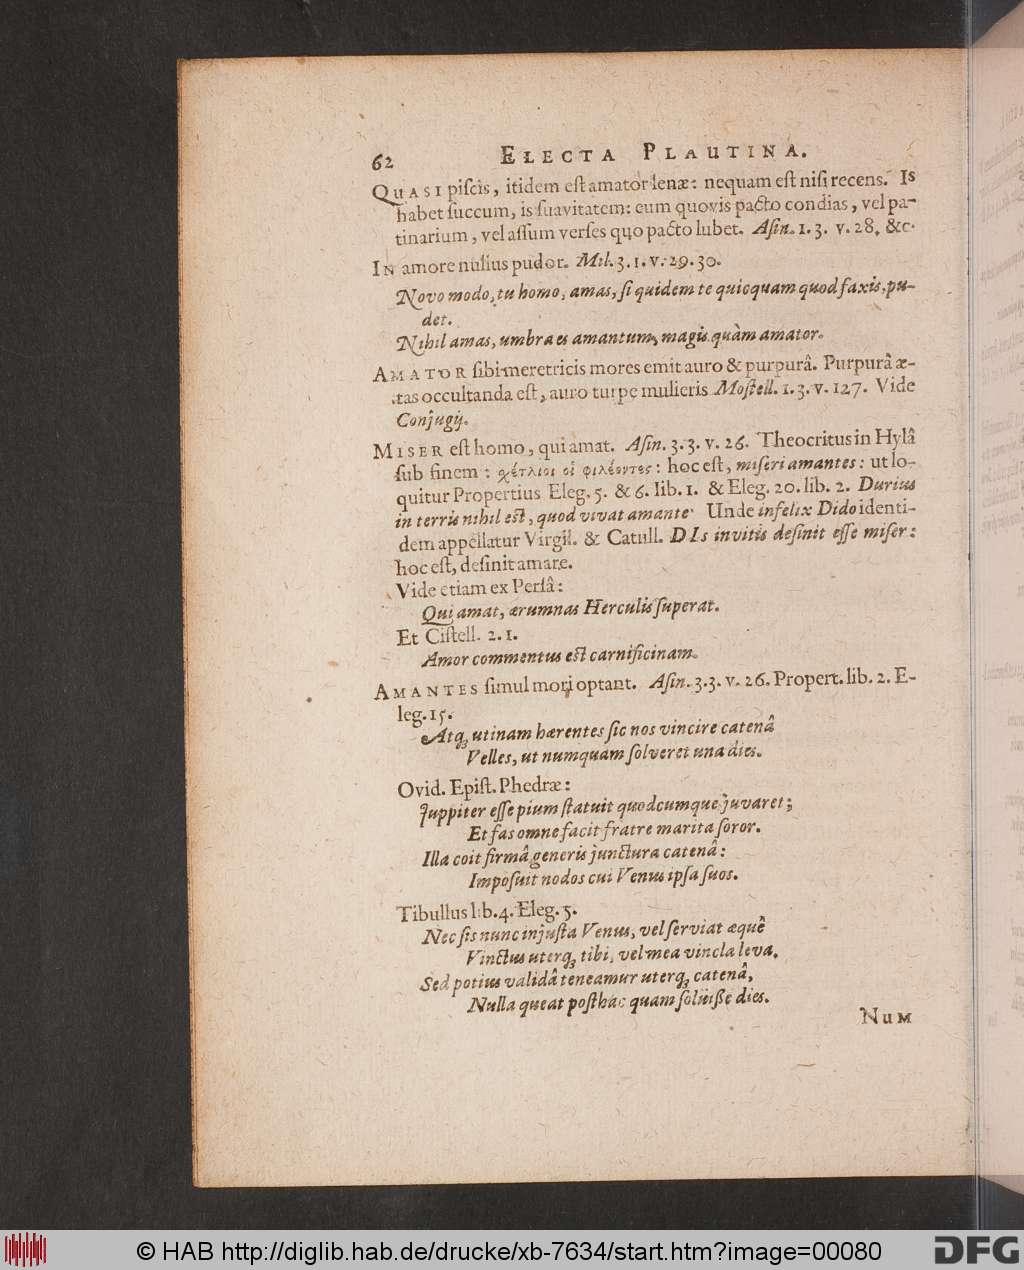 62 ELECTA PLAUTINA.
QUASI piſcis, itidem eſt amator lenæ: nequam eſt niſi recens. Is
habet ſuccum, is ſuavitatem: eum quovis pacto condias, vel pa-
tinarium, vel aſſum verſes quo pacto lubet. Aſin. 1. 3. v. 28. &c.
IN amore nullus pudor. Mil. 3. 1. v. 29. 30.
Novo modo, tu homo, amas, ſi quidem te quicquam quod faxis, pu-
det.
Nihil amas, umbra es amantum, magis quàm amator.
AMATOR ſibi meretricis mores emit auro & purpurâ. Purpurâ æ-
tas occultanda eſt, auro turpe mulieris Moſtell. 1. 3. v. 127. Vide
Conjugij.
MISER eſt homo, qui amat. Aſin. 3. 3. v. 26. Theocritus in Hylâ
ſub finem: σχέτλιοι οἱ φιλέοντες: hoc eſt, miſeri amantes: ut lo-
quitur Propertius Eleg. 5. & 6. lib. 1. & Eleg. 20. lib. 2. Durius
in terris nihil eſt, quod vivat amante. Unde infelix Dido identi-
dem appellatur Virgil. & Catull. DIs invitis deſinit eſſe miſer:
hoc eſt, deſinit amare.
Vide etiam ex Perſâ:
Qui amat, ærumnas Herculis ſuperat.
Et Ciſtell. 2. 1.
Amor commentus eſt carnificinam.
AMANTES ſimul mori optant. Aſin. 3. 3. v. 26. Propert. lib. 2. E-
leg. 15.
Atq; utinam hærentes ſic nos vincire catenâ
Velles, ut numquam ſolveret una dies.
Ovid. Epiſt. Phedræ:
Juppiter eſſe pium ſtatuit quodcumque juvaret;
Et fas omne facit fratre marita ſoror.
Illa coit firmâ generis junctura catenâ:
Impoſuit nodos cui Venus ipſa ſuos.
Tibullus lib. 4. Eleg. 5.
Nec ſis nunc injuſta Venus, vel ſerviat æquè
Vinctus uterq; tibi, vel mea vincla leva.
Sed potius validâ teneamur uterq; catenâ,
Nulla queat poſthàc quam ſolviſſe dies.
NUM
© HAB http://diglib.hab.de/drucke/xb-7634/start.htm?image=00080
DFG